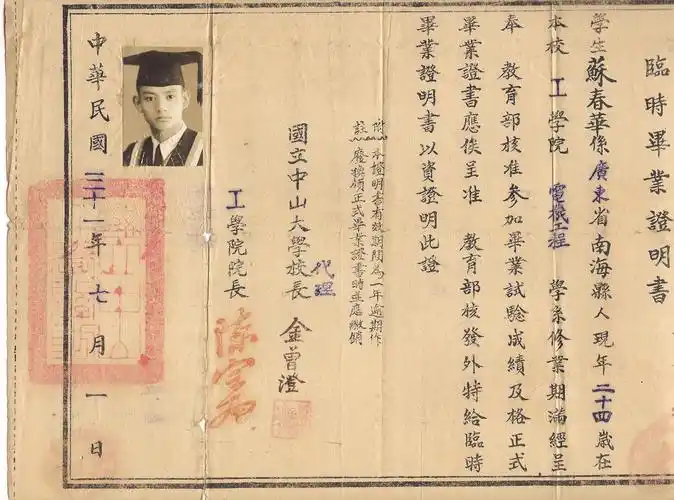 臨時畢業證明書
學生蘇春華係廣東省南海縣人現年二十四歲在
本校工學院電機工程學系修業期滿經呈
奉教育部核准參加畢業試驗成績及格正式
畢業證書應俟呈准教育部核發外特給臨時
畢業證明書以資證明此證
附註本證明書有效期間為一年逾期作
廢換領正式畢業證書時並應繳銷
國立中山大學校長代理金曾澄
工學院院長
中華民國三十一年七月一日